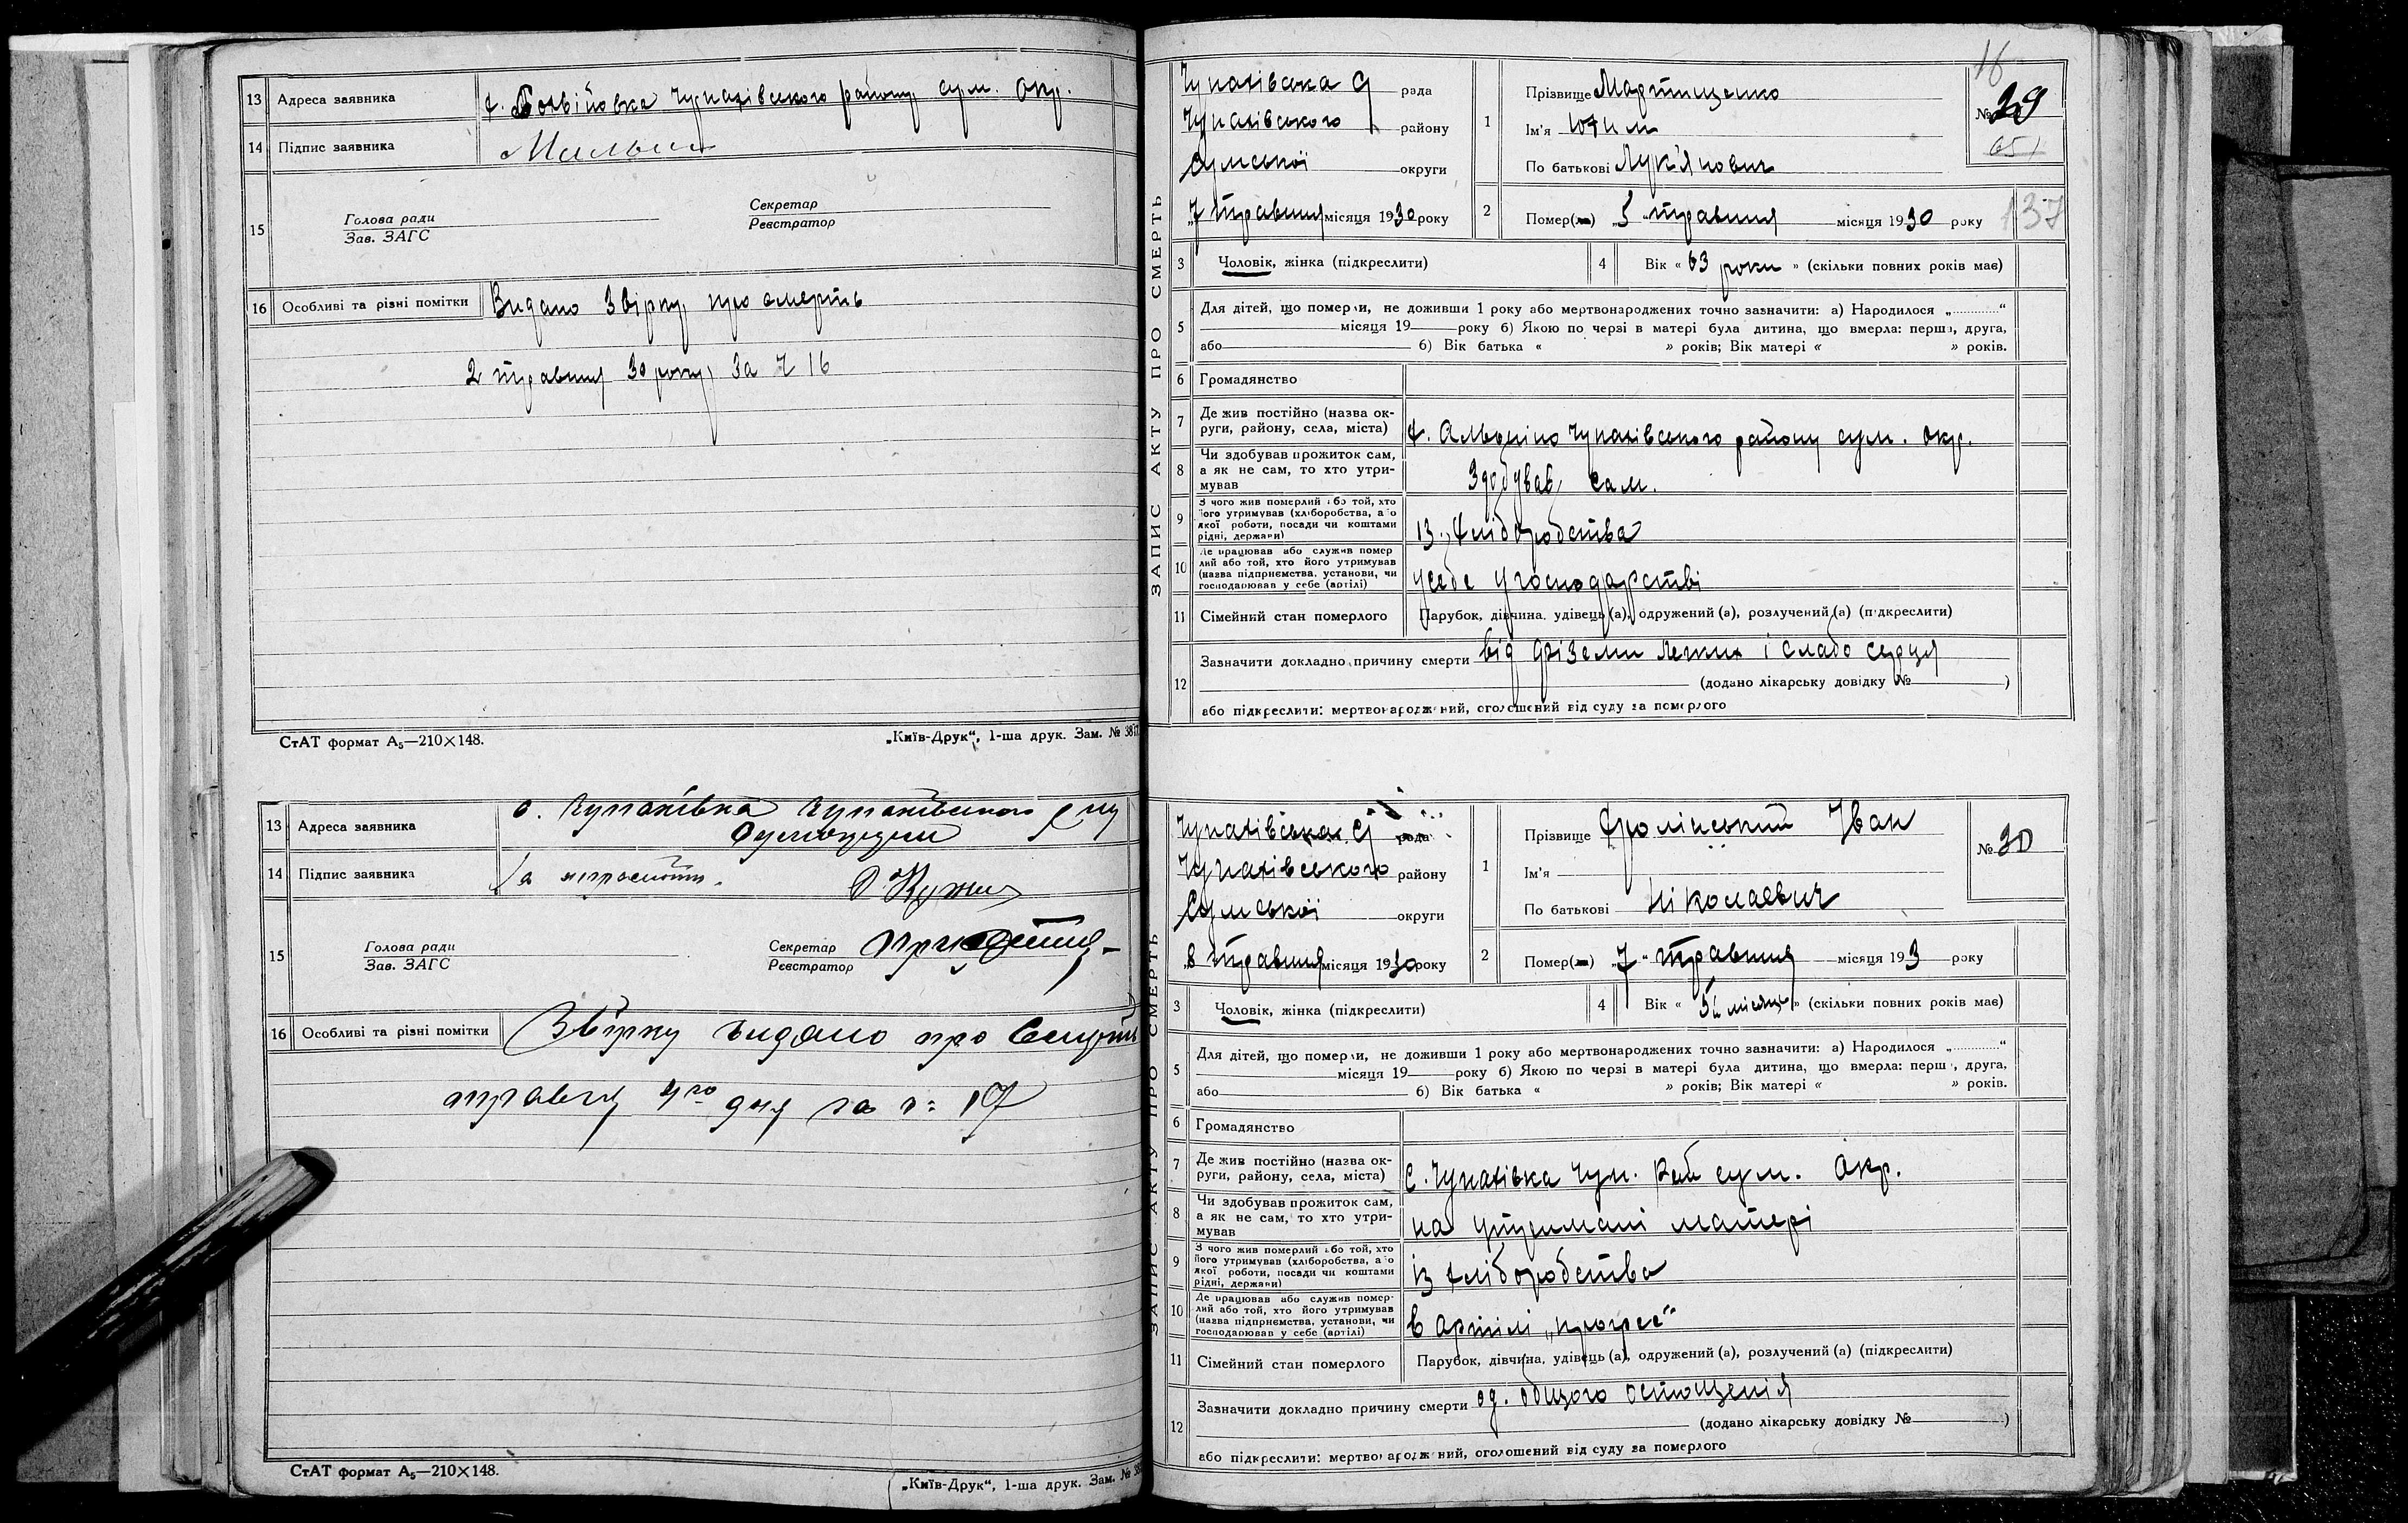 13 Адреса заявника х. Боявійовка Чупахівського району сум. окр.
14 Підпис заявника
15 Голова ради Секретар
Зав. ЗАГС Реєстратор
16 Особливі та різні помітки Видано Звірку про смерть
2 травня 30 року За Ч 16
СтАТ формат А₅—210×148. „Київ-Друк“, 1-ша друк. Зам. №
13 Адреса заявника с. Чупахівка Чупахівського р-ну
Сумокруги
14 Підпис заявника За неграмотн.
15 Голова ради Секретар
Зав. ЗАГС Реєстратор
16 Особливі та різні помітки Звірку видано про Смерть
травня 4го дня за ч: 17
СтАТ формат А₅—210×148. „Київ-Друк“, 1-ша друк. Зам. №
16
ЗАПИС АКТУ ПРО СМЕРТЬ
Чупахівська С рада
Чупахівського району
Сумської округи
„7 травня місяця 1930 року
1 Прізвище Мартищенко
Ім'я Юхим
По батькові Лук'янович
№ 29
651
2 Помер(ла) „5 “ травня місяця 1930 року
137
3 Чоловік, жінка (підкреслити) 4 Вік « 63 роки » (скільки повних років має)
5 Для дітей, що померли, не доживши 1 року або мертвонароджених точно зазначити: а) Народилося „............“
місяця 19 року б) Якою по черзі в матері була дитина, що вмерла: перша, друга,
або б) Вік батька « » років; Вік матері « » років.
6 Громадянство
7 Де жив постійно (назва округи, району, села, міста) х. Альошино Чупахівського району сум. окр.
8 Чи здобував прожиток сам, а як не сам, то хто утримував Здобував сам.
9 З чого жив померлий або той, хто його утримував (хліборобства, або якої роботи, посади чи коштами рідні, держави) Із хліборобства
10 Де працював або служив померлий або той, хто його утримував (назва підприємства, установи, чи господарював у себе (артілі) усебе у господарстві
11 Сімейний стан померлого Парубок, дівчина, удівець (а), одружений (а), розлучений (а) (підкреслити)
12 Зазначити докладно причину смерти від Фіземи легких і слабо серця
(додано лікарську довідку № )
або підкреслити: мертвонароджений, оголошений від суду за померлого
ЗАПИС АКТУ ПРО СМЕРТЬ
Чупахівська С рада
Чупахівського району
Сумської округи
„8 травня місяця 1930 року
1 Прізвище Фролінський Іван
Ім'я
По батькові Ніколаєвич
№ 30
2 Помер(ла) „7 “ травня місяця 193 року
3 Чоловік, жінка (підкреслити) 4 Вік « місяц » (скільки повних років має)
5 Для дітей, що померли, не доживши 1 року або мертвонароджених точно зазначити: а) Народилося „............“
місяця 19 року б) Якою по черзі в матері була дитина, що вмерла: перша, друга,
або б) Вік батька « » років; Вік матері « » років.
6 Громадянство
7 Де жив постійно (назва округи, району, села, міста) С. Чупахівка Чуп. Рай сум. окр.
8 Чи здобував прожиток сам, а як не сам, то хто утримував на утримані матері
9 З чого жив померлий або той, хто його утримував (хліборобства, або якої роботи, посади чи коштами рідні, держави) Із хліборобства
10 Де працював або служив померлий або той, хто його утримував (назва підприємства, установи, чи господарював у себе (артілі) в артілі „Прогрес“
11 Сімейний стан померлого Парубок, дівчина, удівець (а), одружений (а), розлучений (а) (підкреслити)
12 Зазначити докладно причину смерти од. общого остощенія
(додано лікарську довідку № )
або підкреслити: мертвонароджений, оголошений від суду за померлого